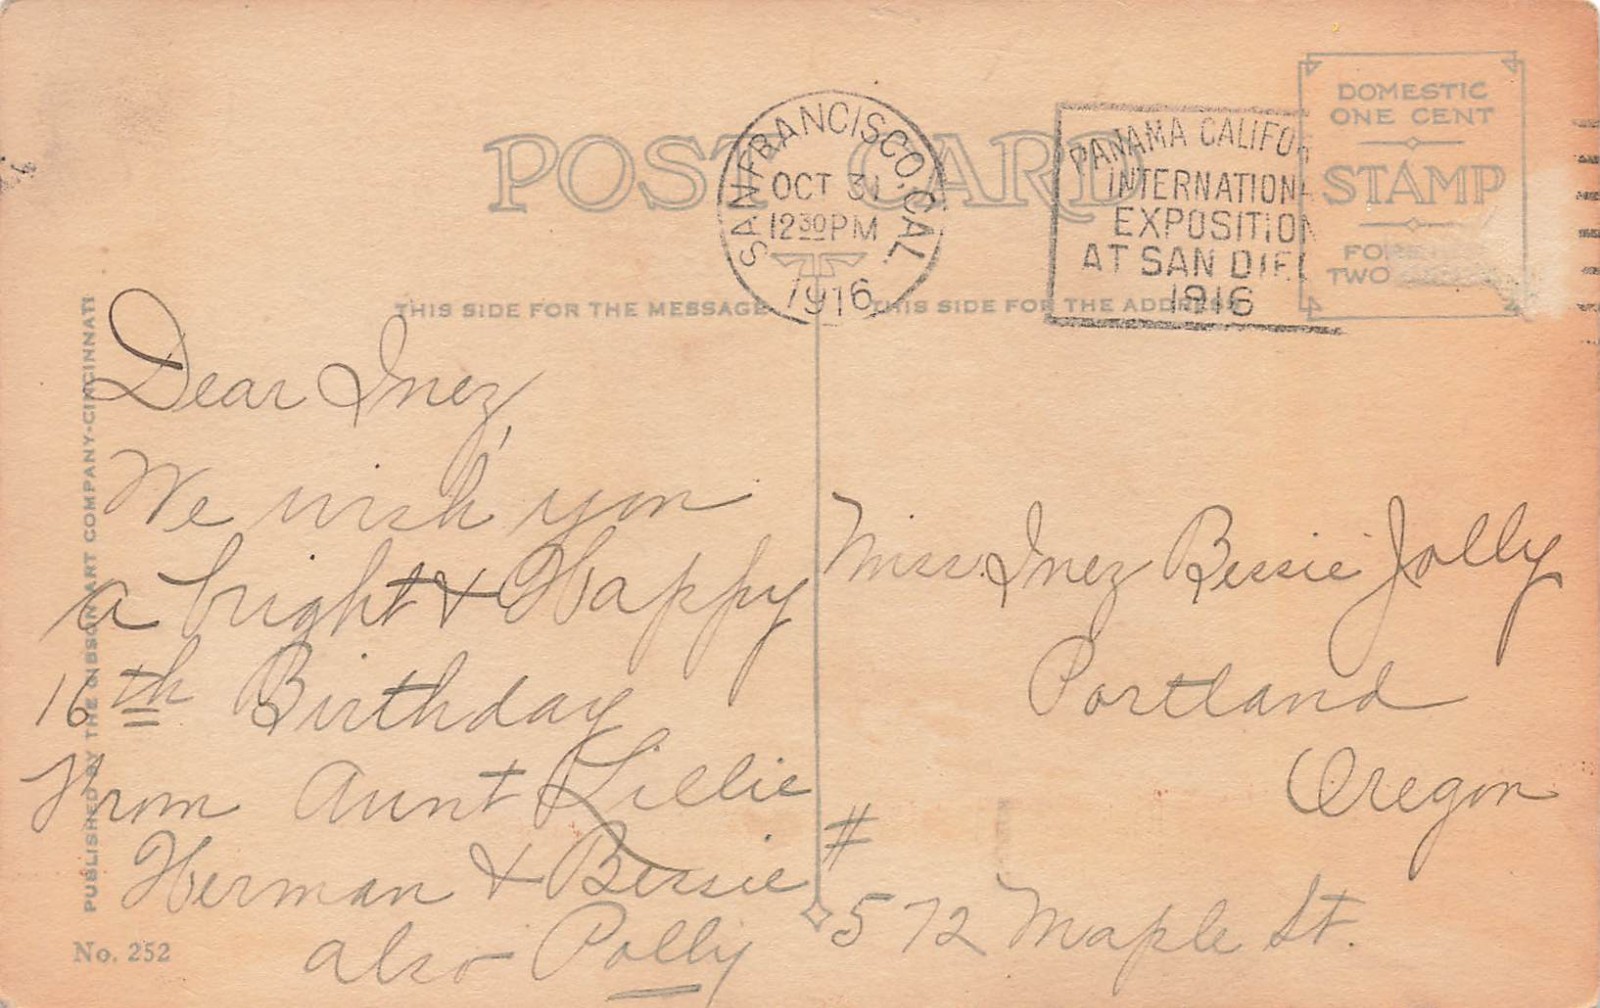 POST CARD
SAN FRANCISCO, CAL.
OCT 31
12 30 PM
1916
PANAMA CALIFO
INTERNATION
EXPOSITION
AT SAN DIE
1916
DOMESTIC
ONE CENT
STAMP
TWO
THIS SIDE FOR THE MESSAGE
THIS SIDE FOR THE ADDRESS
PUBLISHED BY THE GIBSON ART COMPANY-CINCINNATI
Dear Inez,
We wish you
a bright & Happy
16th Birthday
From Aunt Lillie
Herman & Bessie
also Polly
No. 252
Miss. Inez Bessie Jolly
Portland
Oregon
# 572 Maple St.